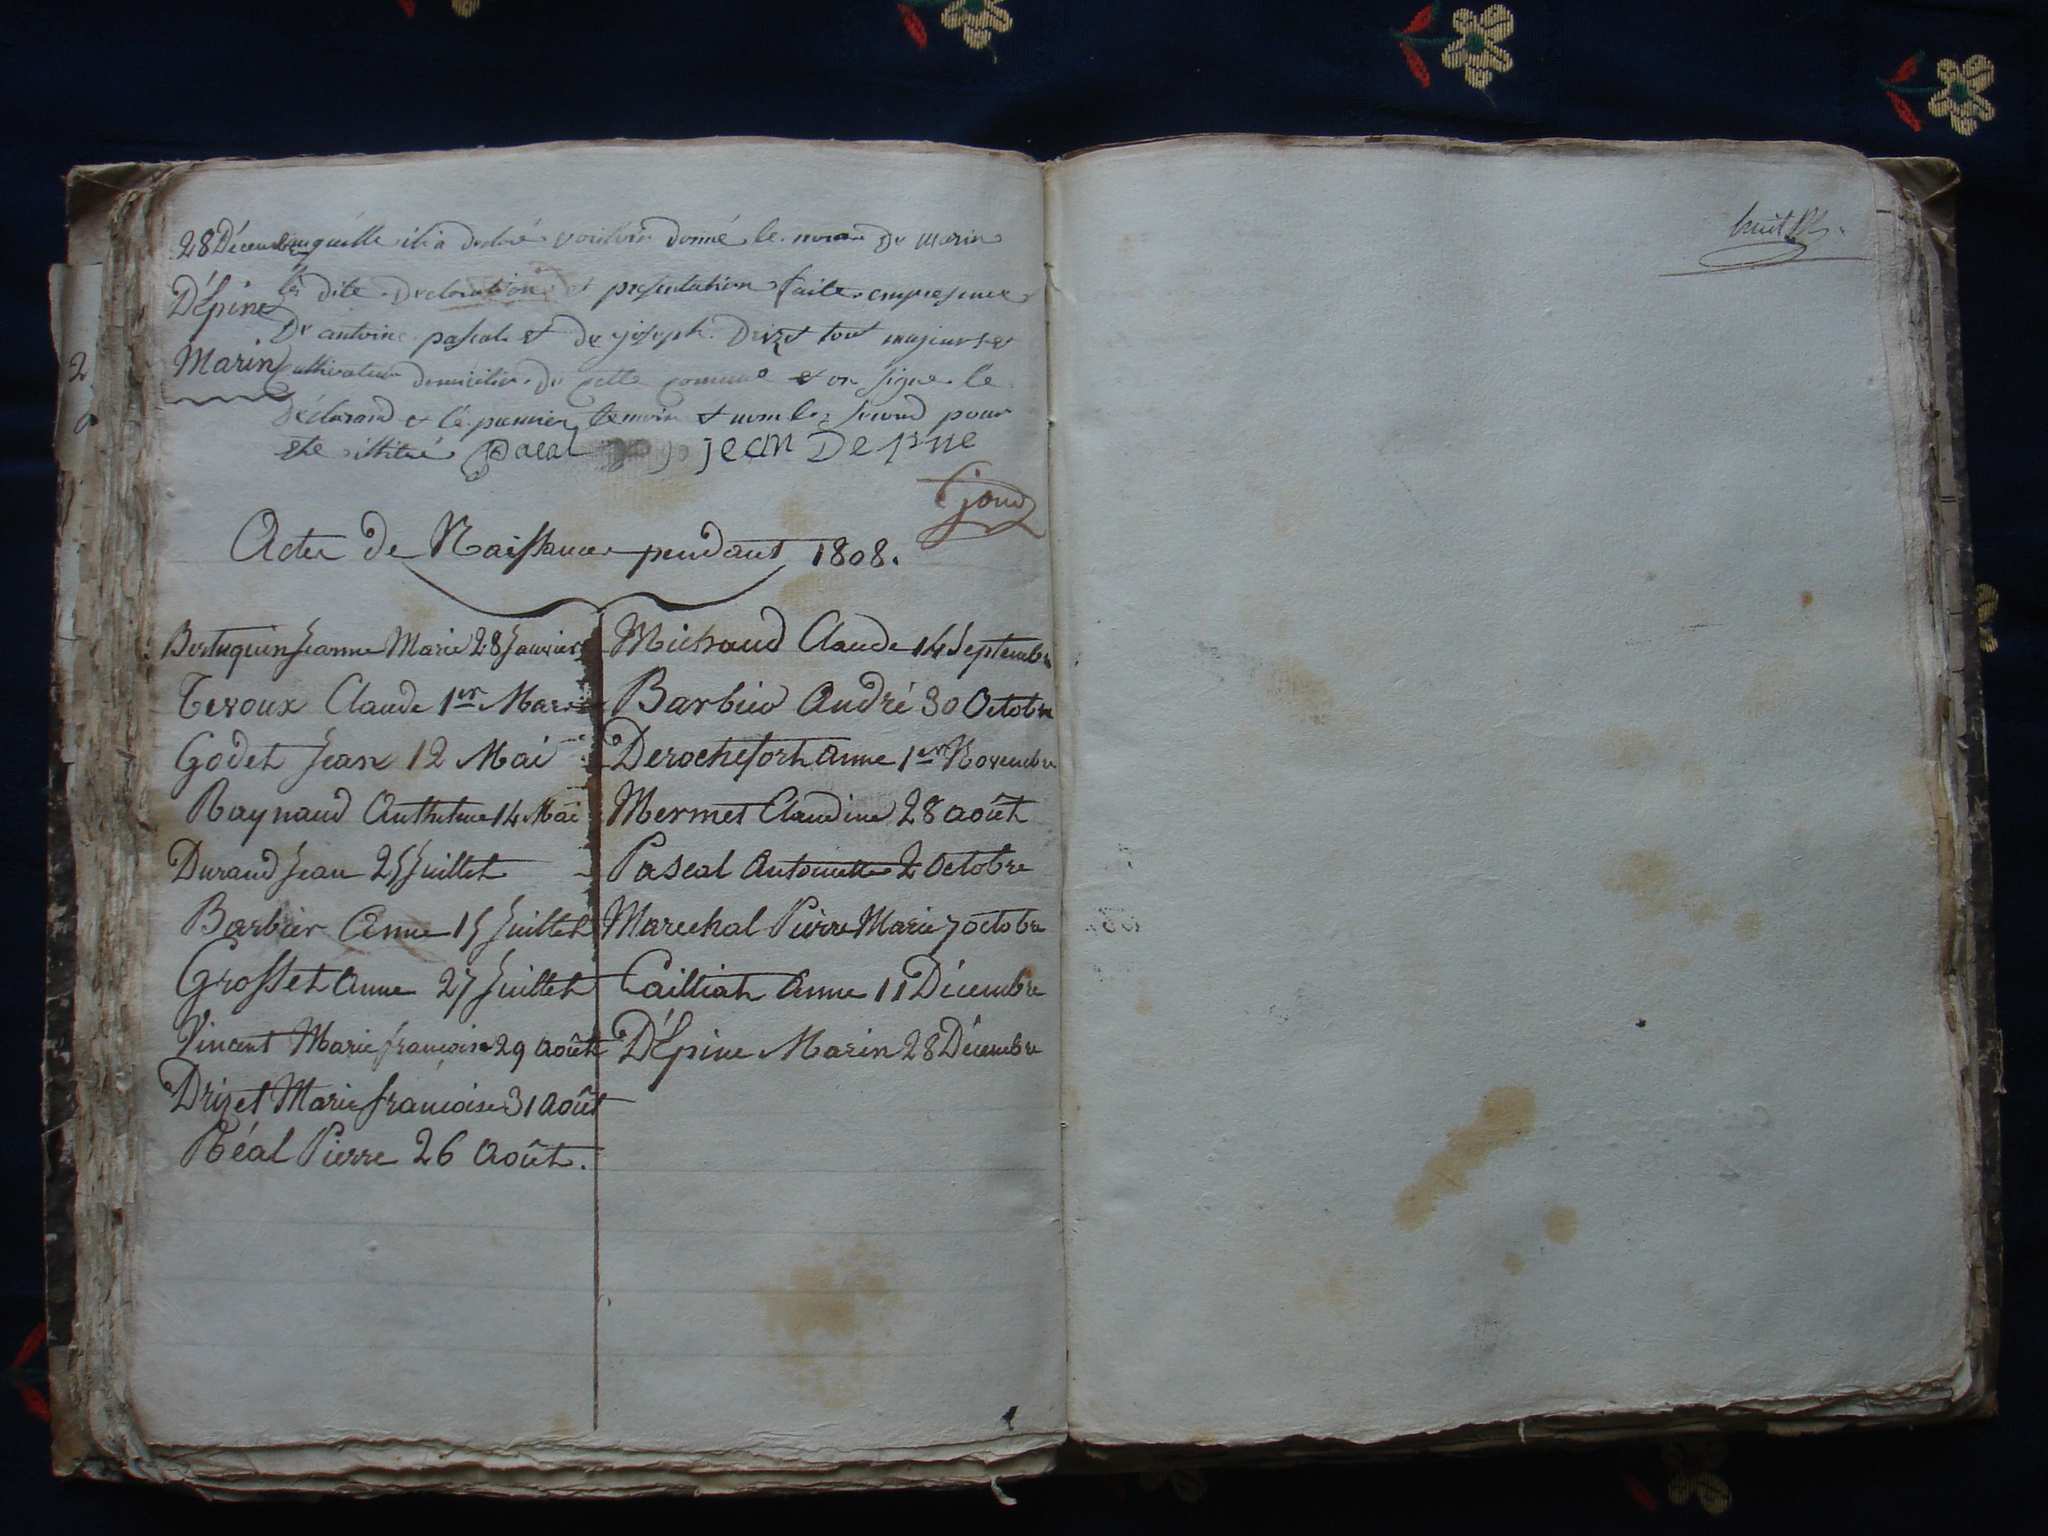 28 Décembre
Dépine
Marin
auquelle il a declaré vouloir donné le nom de marin
les dite declaration et presentation faite en presence
De antoine pascal et de joseph Drizet tout majeurs et
cultivateur domicilier de cette commune et on signe le
déclarand et le premier temoin et non le second pour
etre illitéré Pacal jean Depine
Acte de Naissance pendant 1808.
Bertuquin Jeanne Marie 28 Janvier
Teroux Claude 1er Mars
Godet Jean 12 Mai
Raynaud Anthelme 14 Mai
Durand Jean 25 Juillet
Barbier Anne 15 Juillet
Grosset Anne 27 Juillet
Vincent Marie françoise 29 Août
Drizet Marie françoise 31 Août
Réal Pierre 26 Août.
Michaud Claude 14 Septembre
Barbier André 30 Octobre
Derochefort Anne 1er Novembre
Mermet Claudine 28 août
Pascal Antoinette 2 Octobre
Marechal Pierre Marie 7 octobre
Cailliat Anne 11 Décembre
D'Épine Marin 28 Décembre
huit
2